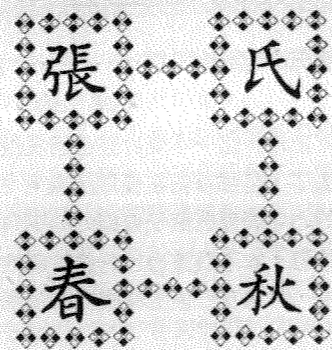 張氏
春秋